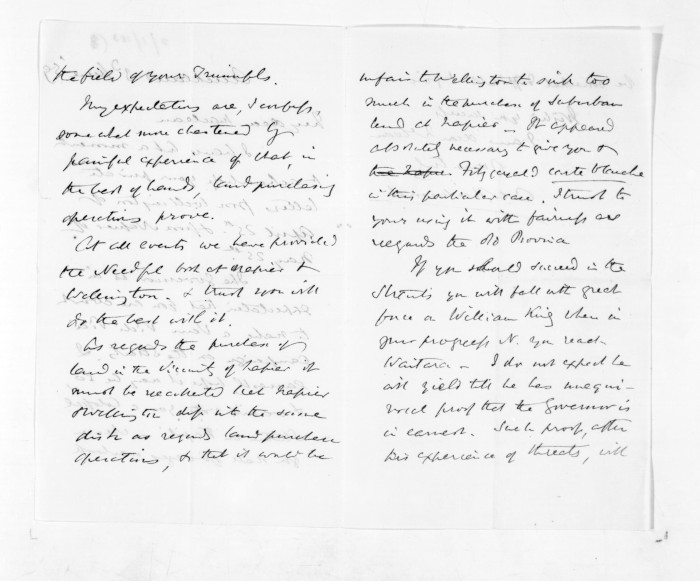 the field of your Triumphs.
My expectations are, I confess,
somewhat more chastened by
painful experience of what, in
the best of hands, land purchasing
operations prove.
At all events we have provided
the Needful both at Napier &
Wellington. & trust you will
do the best with it.
As regards the purchase of
land in the Vicinity of Napier it
must be recollected that Napier
& Wellington dip into the same
dish as regards land purchase
operations, & that it would be
unfair to Wellington to sink too
much in the purchase of Suburban
land at Napier. It appeared
absolutely necessary to give you &
the Napier Fitzgerald carte blanche
in this particular case. I trust to
your using it with fairness as
regards the old Province
If you should succeed in the
you will fall with great
force on William King when in
your progress N. you reach
Waitara - I do not expect he
will yield till he has unequi-
vocal proof that the Governor is
in earnest. Such proof, after
his experience of threats, will